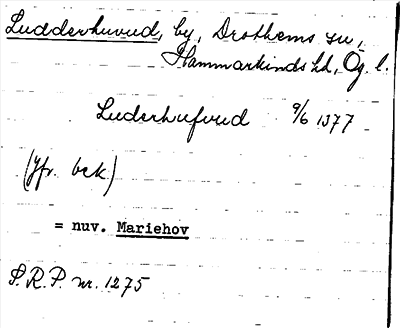 Ludderhuvud, by, Drothems sn,
Hammarkinds hd, Ög. l.
Luderhufvud 9/6 1377
(Jfr. bek)
= nuv. Mariehov
S.R.P. nr. 1275